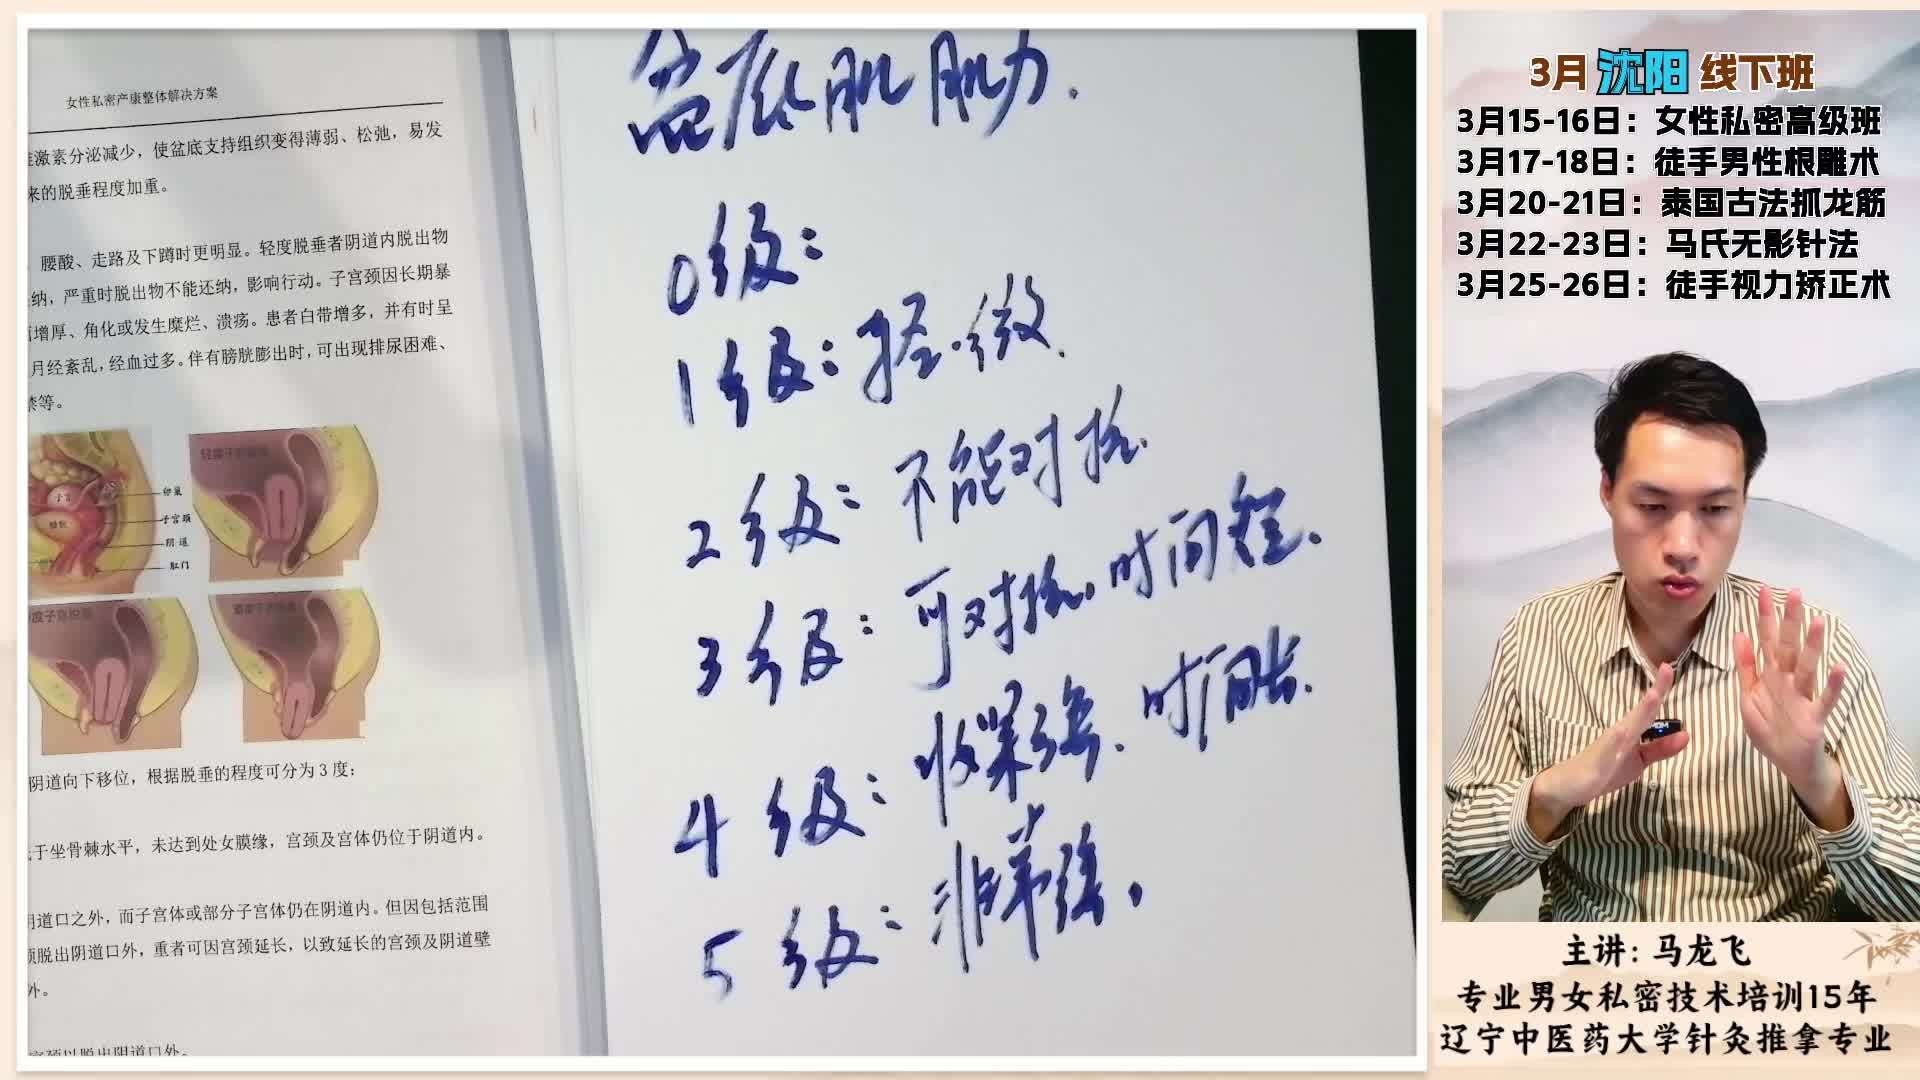 女性私密产康整体解决方案
激素分泌减少，使盆底支持组织变得薄弱、松弛，易发
来的脱垂程度加重。
腰酸、走路及下蹲时更明显。轻度脱垂者阴道内脱出物
纳，严重时脱出物不能还纳，影响行动。子宫颈因长期暴
增厚、角化或发生糜烂、溃疡。患者白带增多，并有时呈
月经紊乱，经血过多。伴有膀胱膨出时，可出现排尿困难、
禁等。
子宫
膀胱
卵巢
子宫颈
阴道
肛门
阴道向下移位，根据脱垂的程度可分为3度：
于坐骨棘水平，未达到处女膜缘，宫颈及宫体仍位于阴道内。
道口之外，而子宫体或部分子宫体仍在阴道内。但因包括范围
脱出阴道口外，重者可因宫颈延长，以致延长的宫颈及阴道壁
外。
盆底肌肌力.
0级：
1级：轻微.
2级：不能对抗.
3级：可对抗，时间短.
4级：收缩强、时间长.
5级：非常强.
3月 沈阳 线下班
3月15-16日：女性私密高级班
3月17-18日：徒手男性根雕术
3月20-21日：泰国古法抓龙筋
3月22-23日：马氏无影针法
3月25-26日：徒手视力矫正术
主讲：马龙飞
专业男女私密技术培训15年
辽宁中医药大学针灸推拿专业